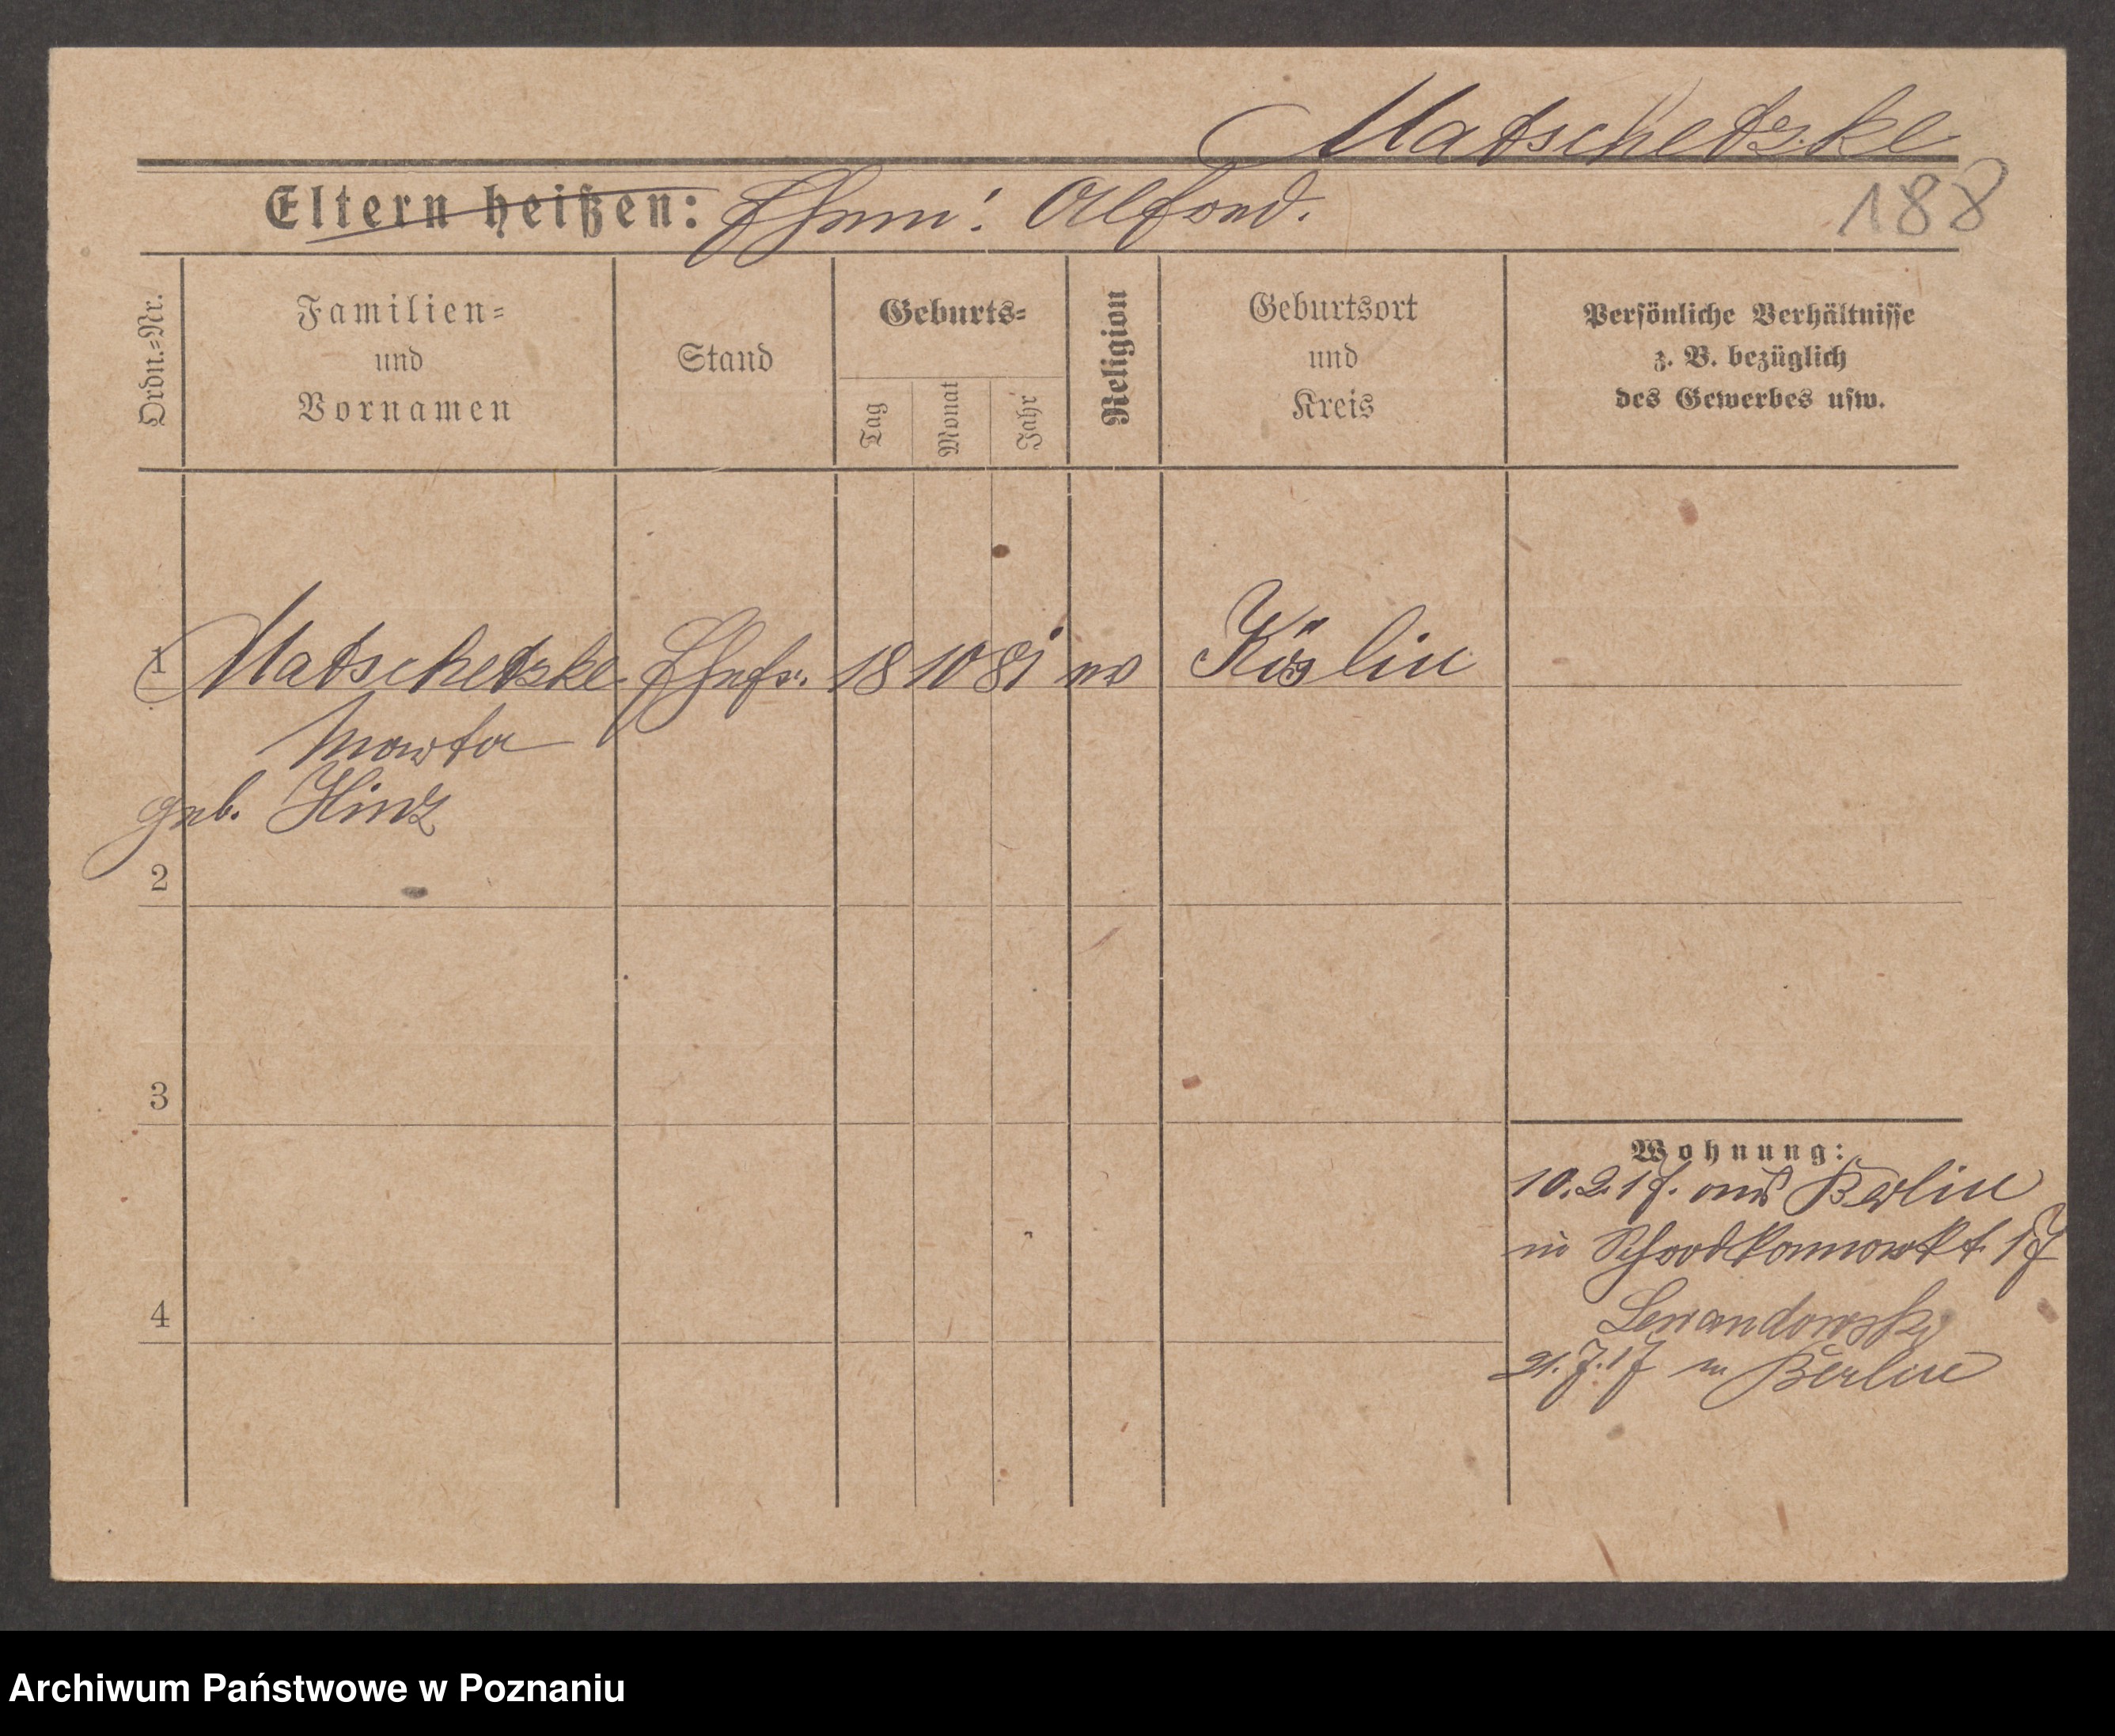 Matschetzke
188
Eltern heißen: Ehem: Alfred.
Ordn.=Nr.
Familien=
und
Vornamen
Stand
Geburts=
Tag
Monat
Jahr
Religion
Geburtsort
und
Kreis
Persönliche Verhältnisse
z. B. bezüglich
des Gewerbes usw.
1 Matschetzke Ehefr. 18 10 81 ev Köslin
Marta
geb. Hinz
2
3
4
Wohnung:
10.2.17. aus Berlin
in 17
Lewandowski
21.7.17 n Berlin
Archiwum Państwowe w Poznaniu